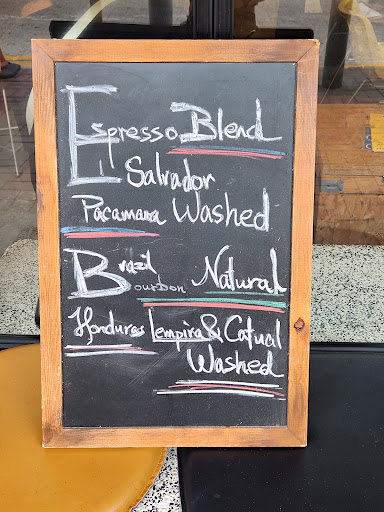 Espresso Blend
El Salvador
Pacamara Washed
Brazil Bourbon Natural
Honduras Lempira & Catual
Washed